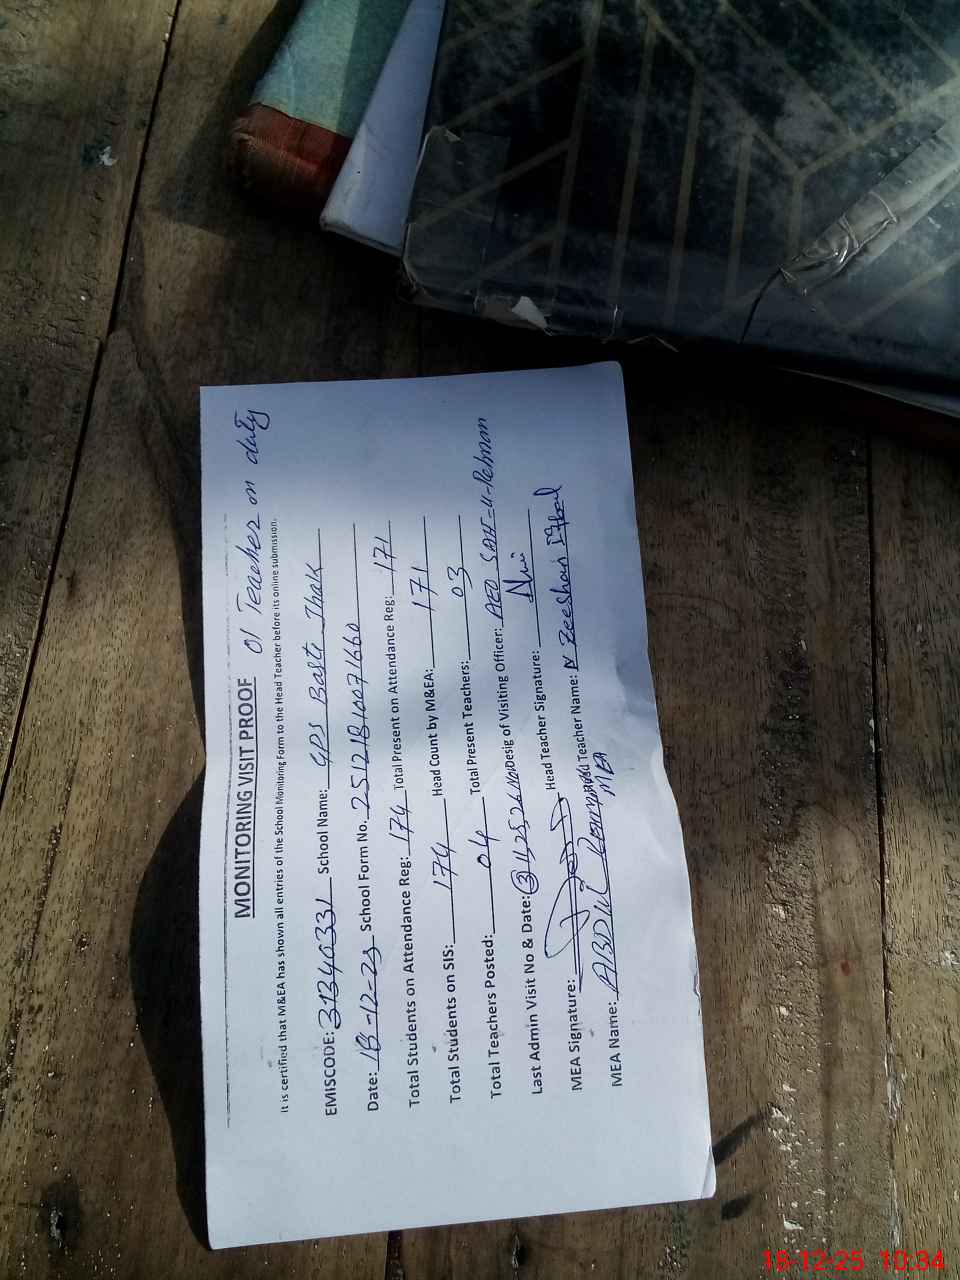 01 Teacher on duty
MONITORING VISIT PROOF
It is certified that M&EA has shown all entries of the School Monitoring Form to the Head Teacher before its online submission.
EMISCODE: 31340331 School Name: GPS Basti Thak
Date: 18-12-25 School Form No. 25121810071660
Total Students on Attendance Reg: 174 Total Present on Attendance Reg: 171
Total Students on SIS: 174 Head Count by M&EA: 171
Total Teachers Posted: 04 Total Present Teachers: 03
Last Admin Visit No & Date: Desig of Visiting Officer: AEO
MEA Signature: Head Teacher Signature:
MEA Name: Abdul Teacher Name: Zeeshan Iqbal
MEA
18-12-25 10:34